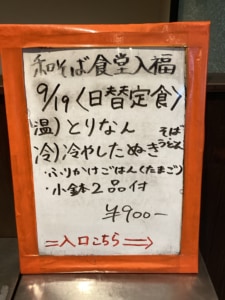 和そば食堂入福
9/19〈日替定食〉
温)とりなん
冷)冷やしたぬき
そば
うどん
・ふりかけごはん(たまご)
・小鉢2品付
¥900-
=入口こちら⇒